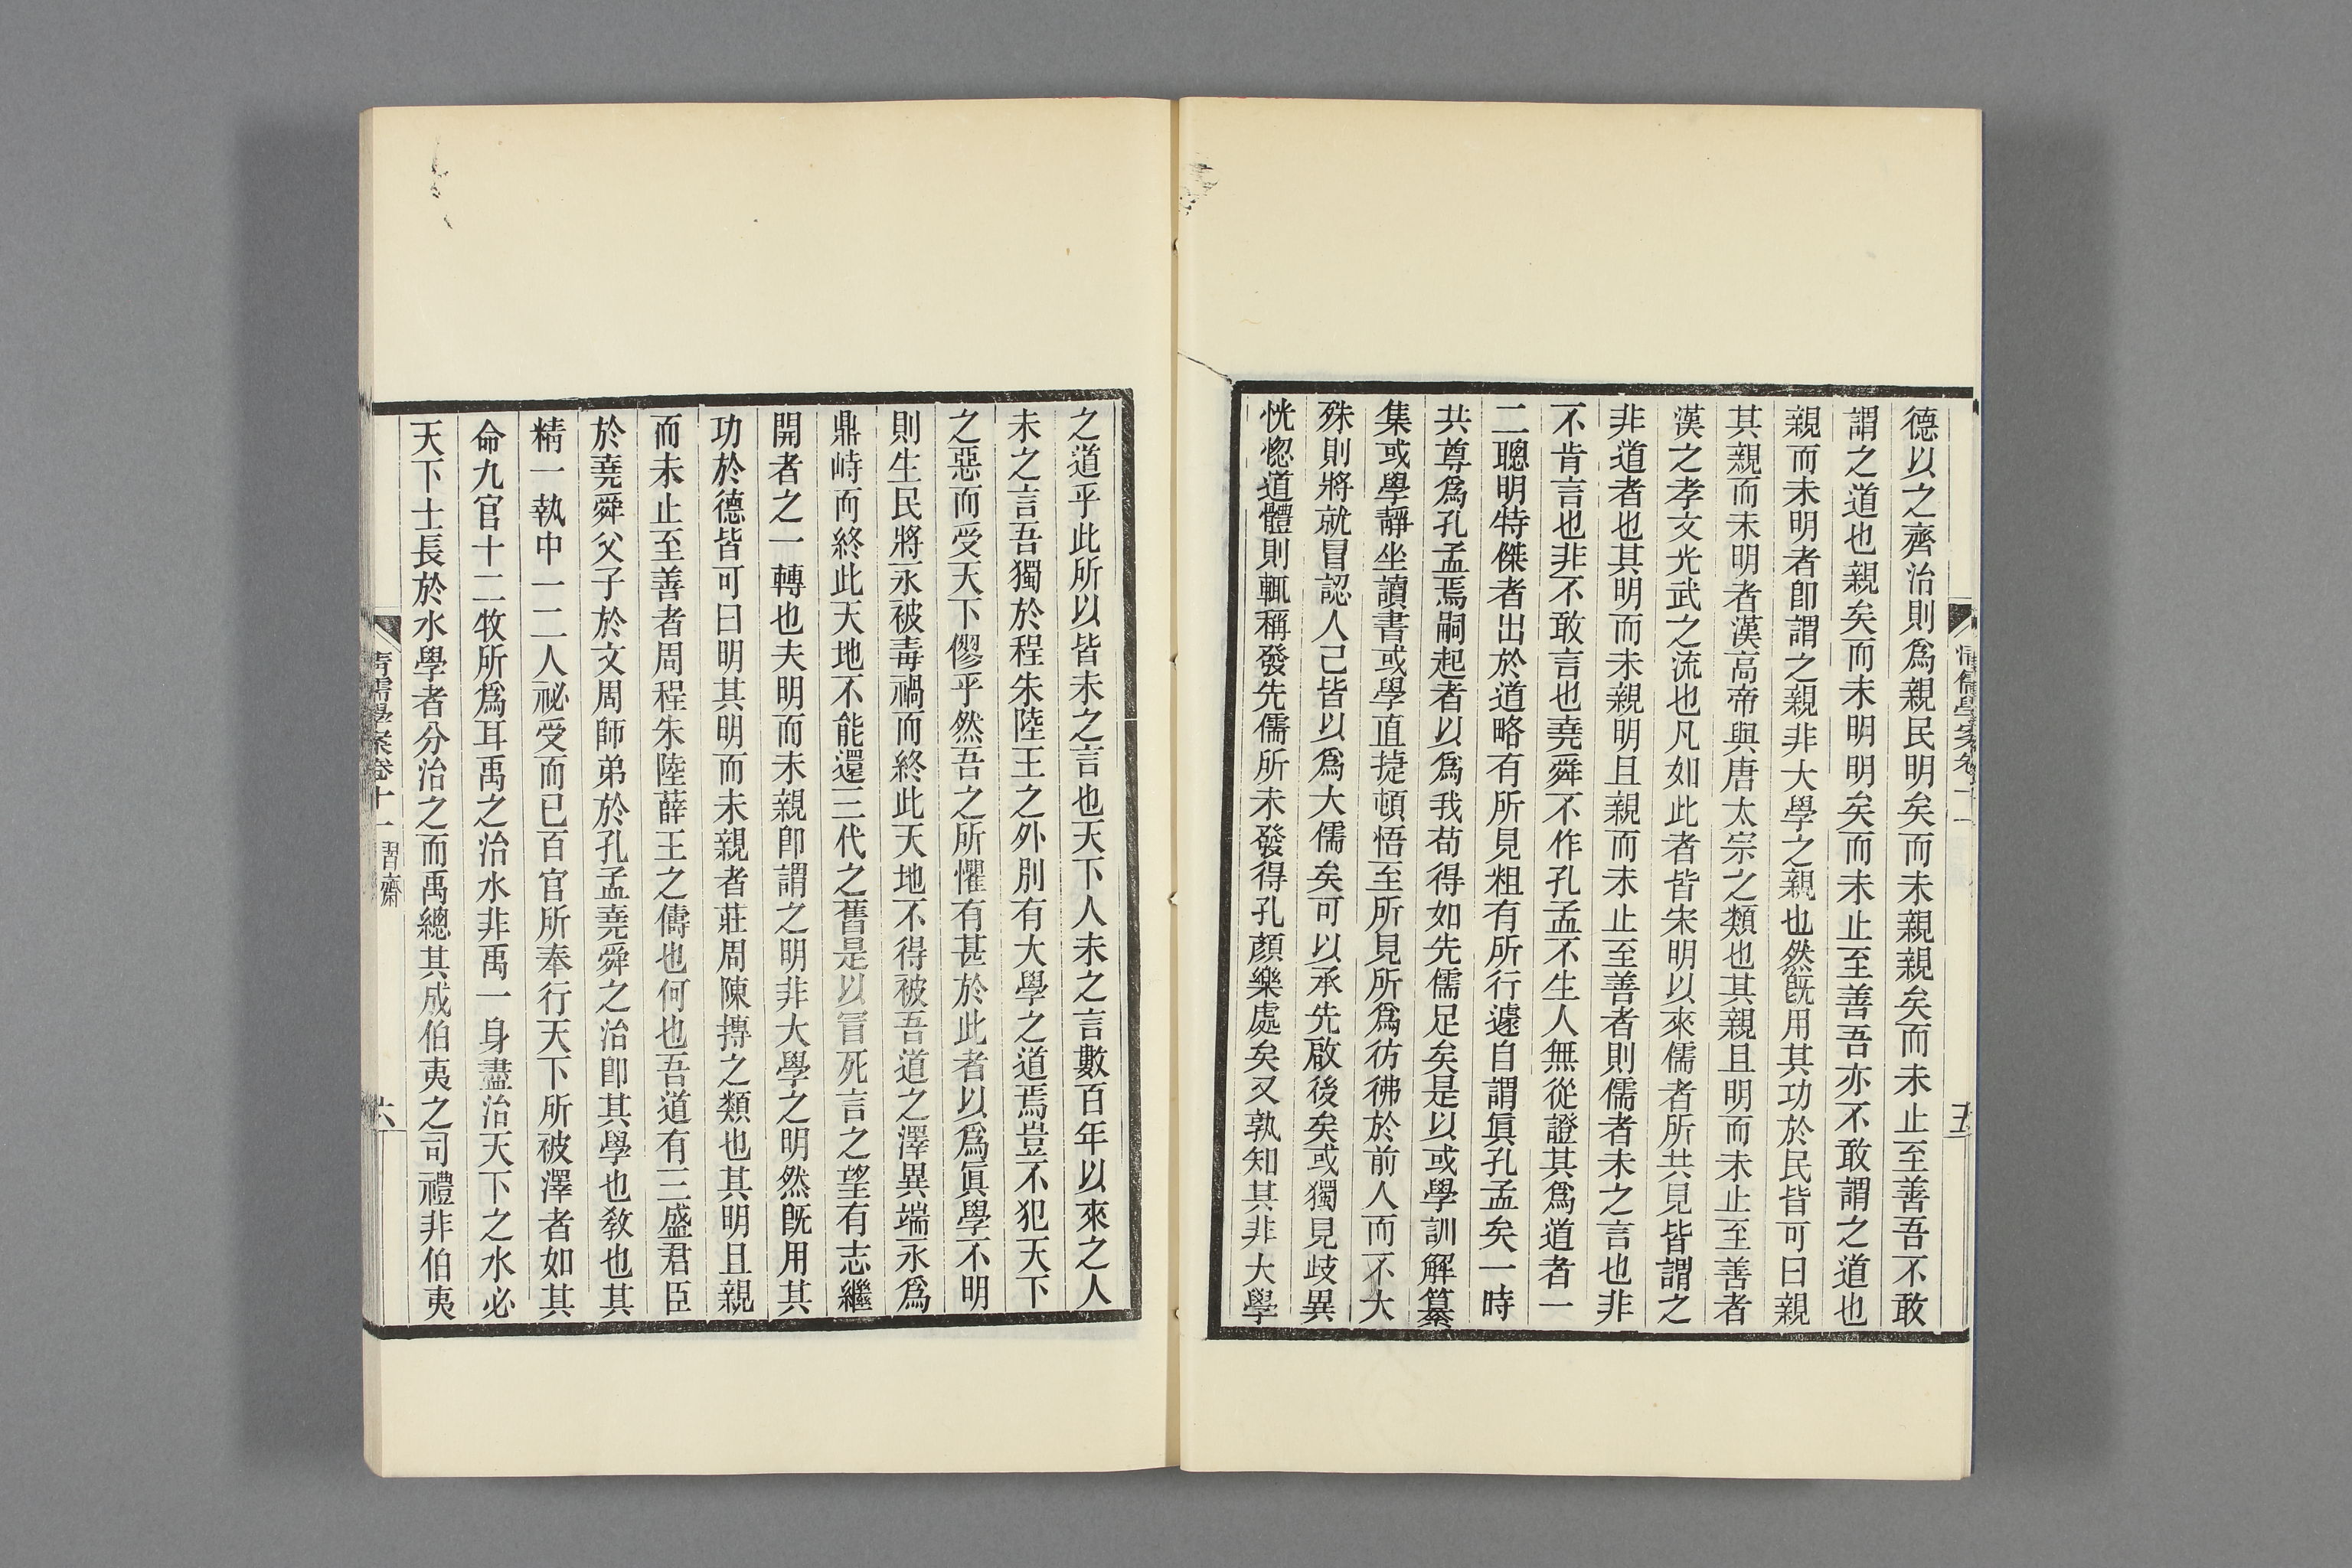 清儒學案卷十一
五
德以之齊治則爲親民明矣而未親親矣而未止至善吾不敢
謂之道也親矣而未明明矣而未止至善吾亦不敢謂之道也
親而未明者卽謂之親非大學之親也然旣用其功於民皆可曰親
其親而未明者漢高帝與唐太宗之類也其親且明而未止至善者
漢之孝文光武之流也凡如此者皆宋明以來儒者所共見皆謂之
非道者也其明而未親明且親而未止至善者則儒者未之言也非
不肯言也非不敢言也堯舜不作孔孟不生人無從證其爲道者一
二聰明特傑者出於道略有所見粗有所行遽自謂眞孔孟矣一時
共尊爲孔孟焉嗣起者以爲我苟得如先儒足矣是以或學訓解纂
集或學靜坐讀書或學直捷頓悟至所見所爲彷彿於前人而不大
殊則將就冒認人己皆以爲大儒矣可以承先啟後矣或獨見歧異
恍惚道體則輒稱發先儒所未發得孔顏樂處矣又孰知其非大學
之道乎此所以皆未之言也天下人未之言數百年以來之人
未之言吾獨於程朱陸王之外別有大學之道焉豈不犯天下
之惡而受天下僇乎然吾之所懼有甚於此者以爲眞學不明
則生民將永被毒禍而終此天地不得被吾道之澤異端永爲
鼎峙而終此天地不能還三代之舊是以冒死言之望有志繼
開者之一轉也夫明而未親卽謂之明非大學之明然旣用其
功於德皆可曰明其明而未親者莊周陳摶之類也其明且親
而未止至善者周程朱陸薛王之儔也何也吾道有三盛君臣
於堯舜父子於文周師弟於孔孟堯舜之治卽其學也敎也其
精一執中一二人祕受而已百官所奉行天下所被澤者如其
命九官十二牧所爲耳禹之治水非禹一身盡治天下之水必
天下士長於水學者分治之而禹總其成伯夷之司禮非伯夷
清儒學案卷十一 習齋
六